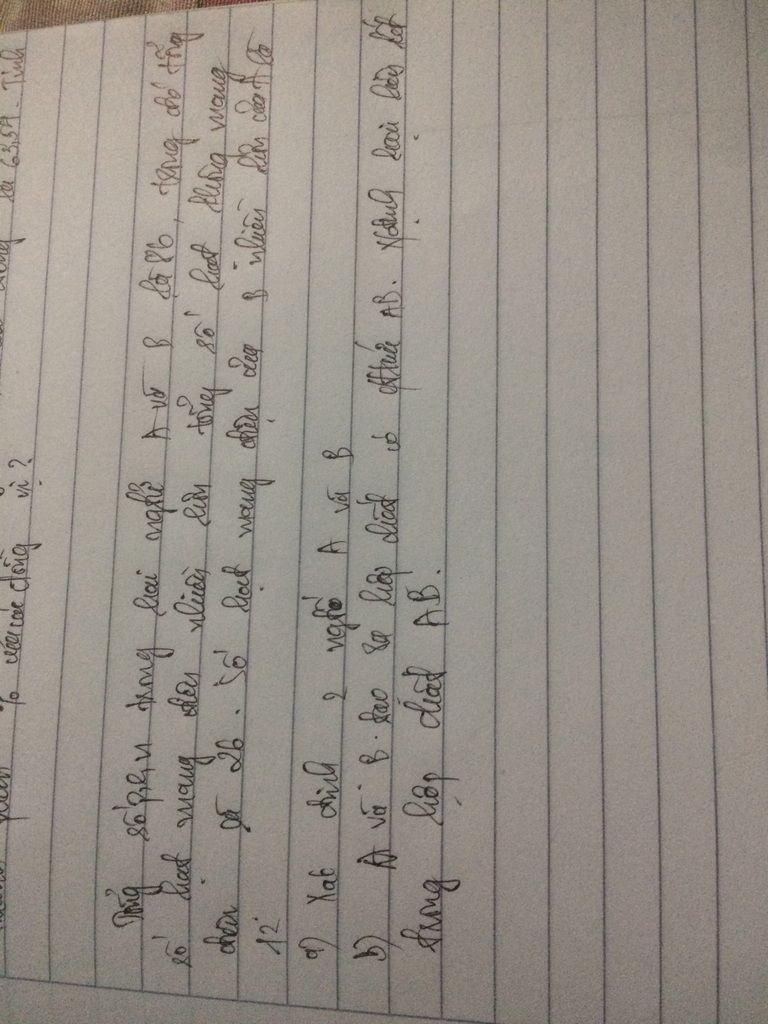 là 63,54. Tính
% của các đồng vị?
Tổng số p, e, n trong hai ngtử A và B là 86, trong đó tổng
số hạt mang điện nhiều hơn tổng số hạt không mang
điện là 26. Số hạt mang điện của B nhiều hơn của A là
12.
a) Xác định 2 ngtử A và B
b) A và B tạo ra hợp chất có thức AB. liên kết
trong hợp chất AB.